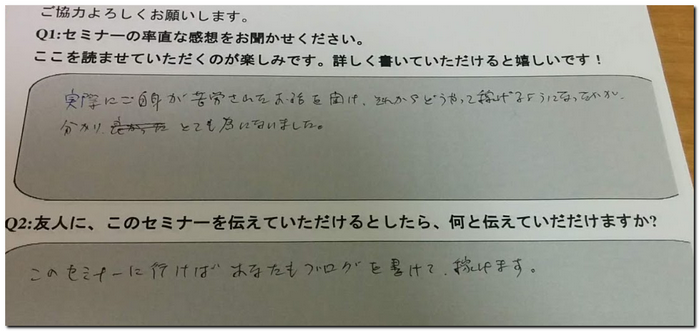 ご協力よろしくお願いします。
Q1:セミナーの率直な感想をお聞かせください。
ここを読ませていただくのが楽しみです。詳しく書いていただけると嬉しいです！
実際にご自身が苦労されたお話を聞け、それからどうやって稼げるようになったのか、
分かり、良かった とても為になりました。
Q2:友人に、このセミナーを伝えていただけるとしたら、何と伝えていただけますか?
このセミナーに行けば あなたもブログを書けて、稼げます。